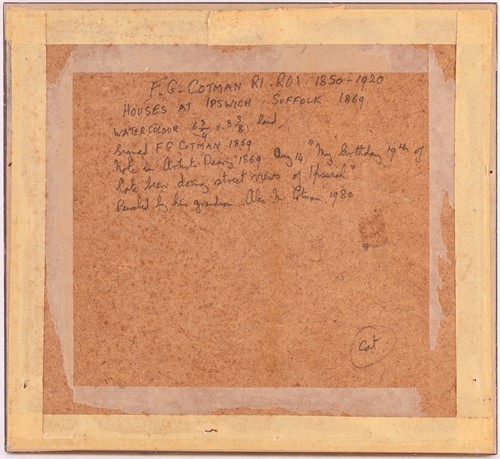 F.G. COTMAN RI. ROI. 1850-1920
HOUSES AT IPSWICH SUFFOLK 1869
WATERCOLOUR 6 3/4 x 8 3/8
Signed F G COTMAN 1869
Note in Artist's Diary 1869 Aug 14 "My birthday 19th of
late been doing street views of Ipswich"
Penciled by his grandson Alec M. Cotman 1980
Cot